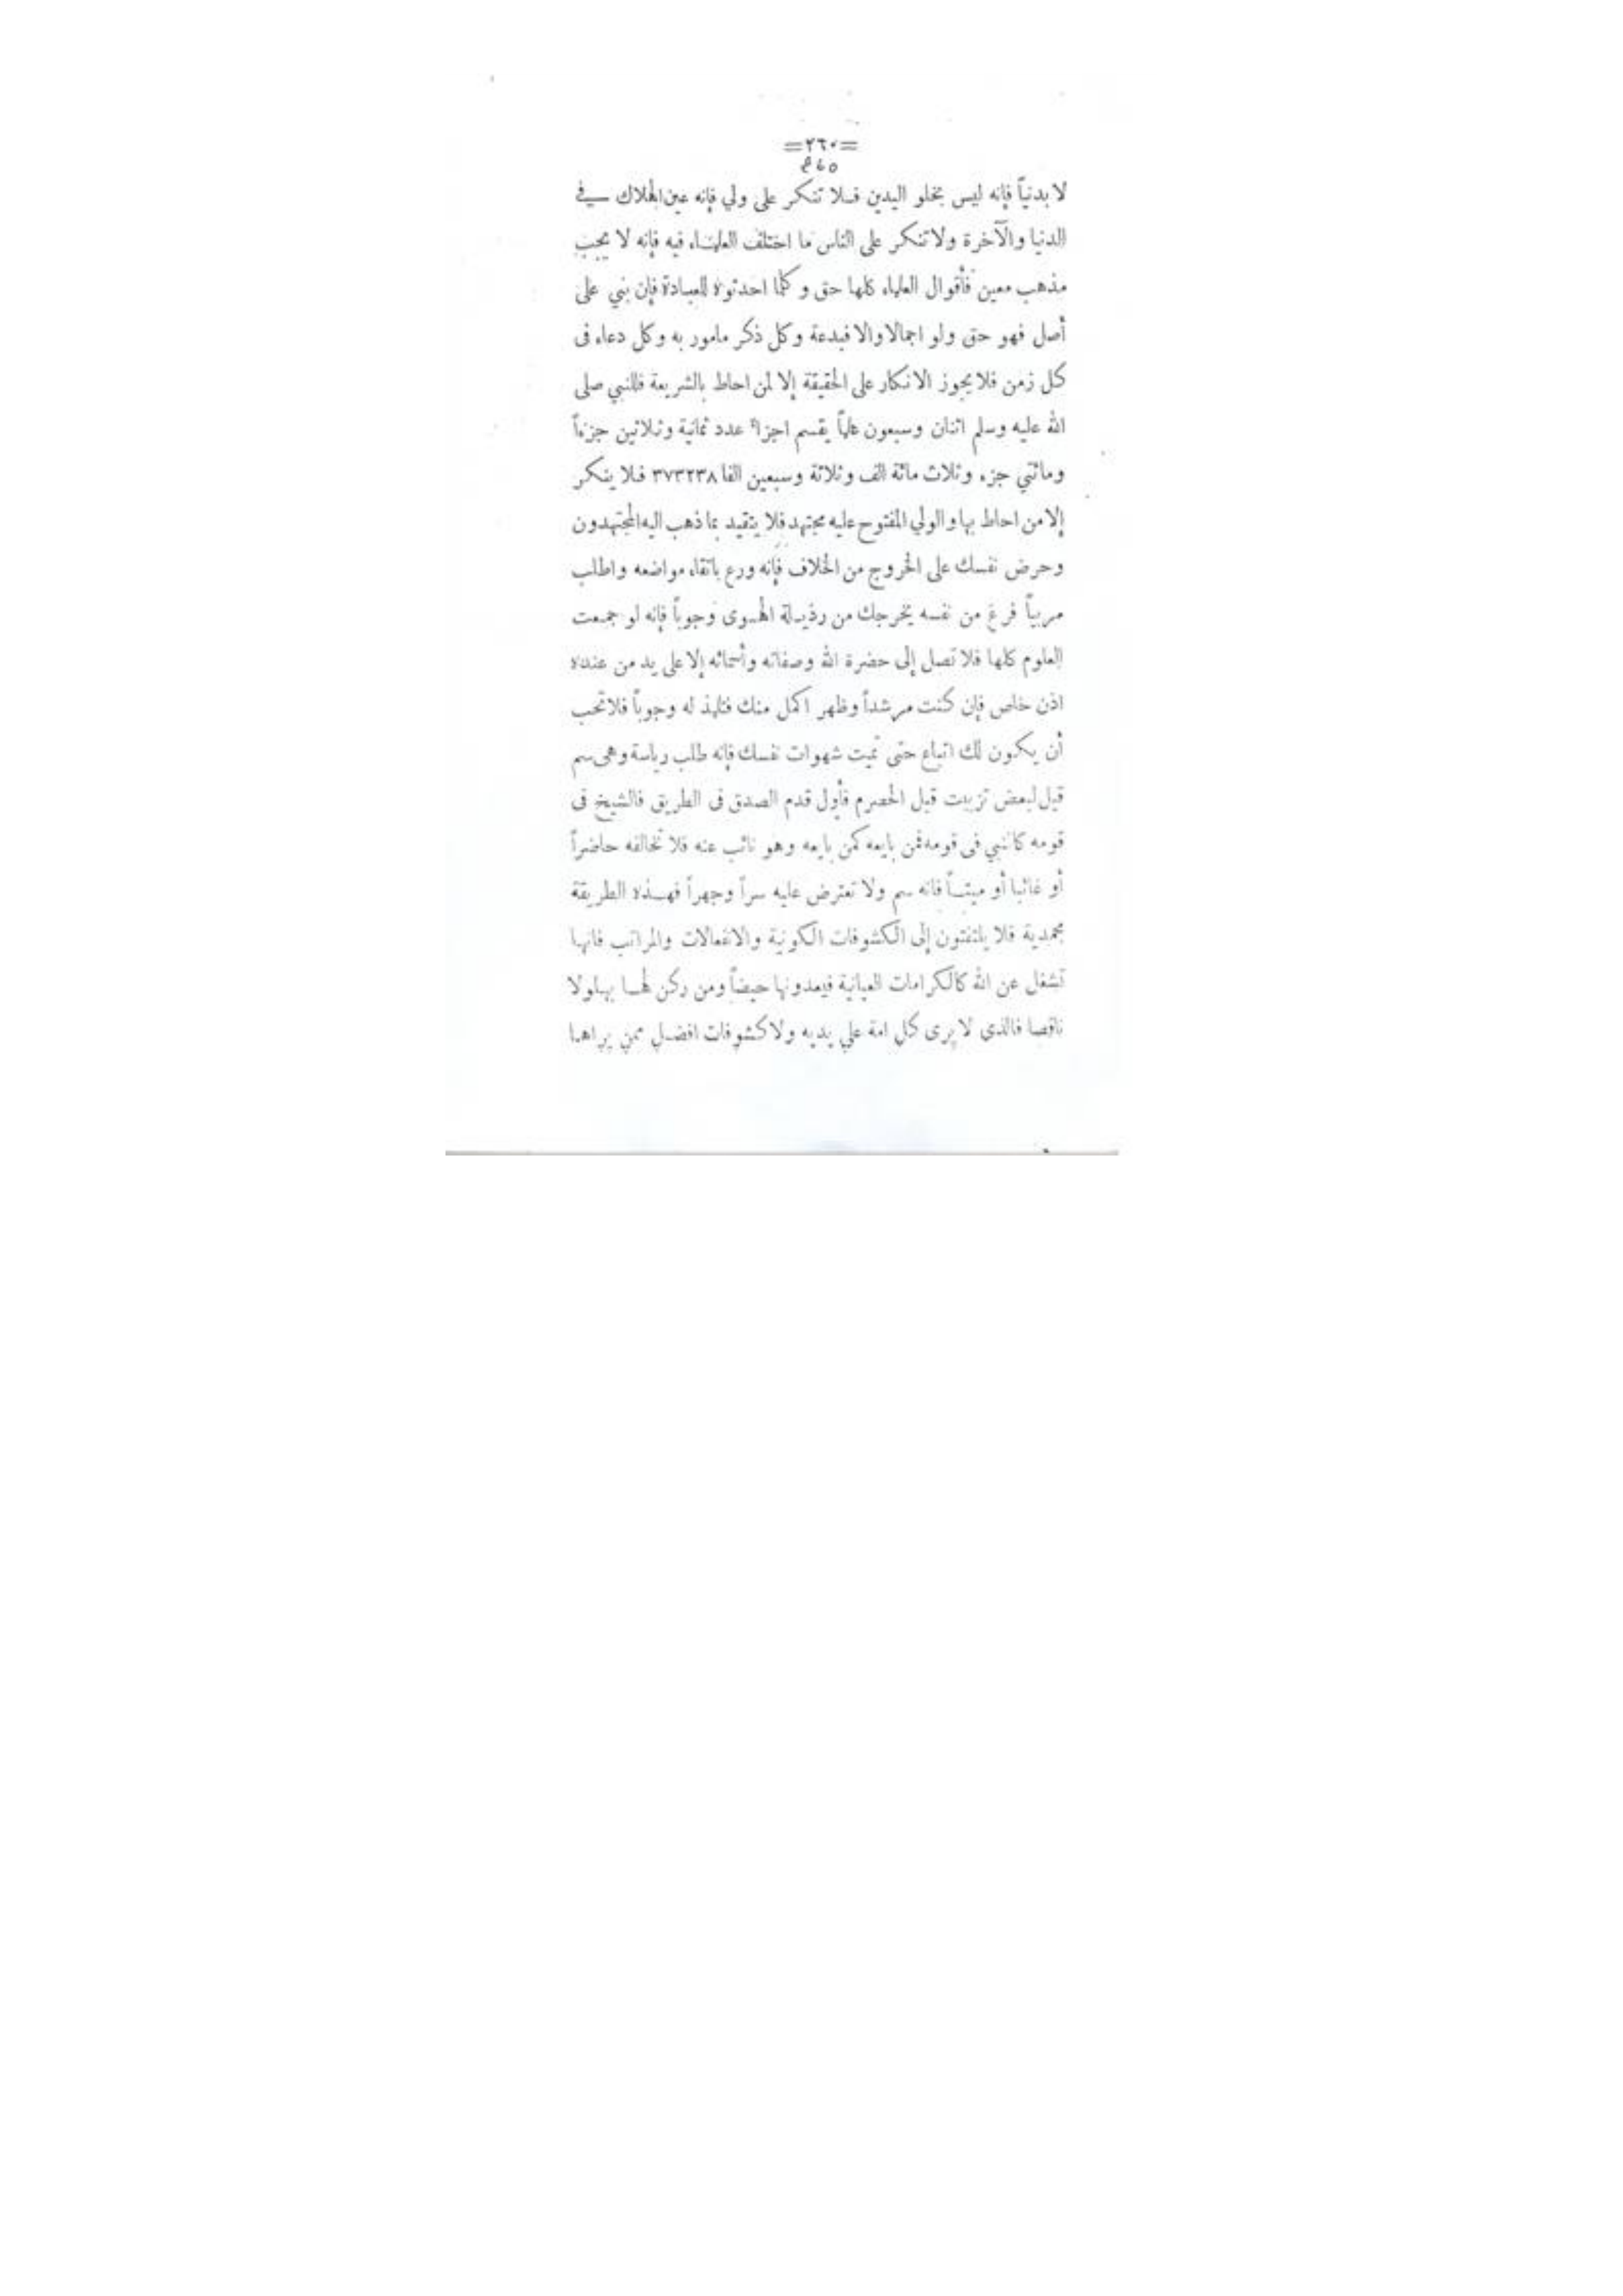 =٢٦٠=
لا بدنياً فإنه ليس بخلو اليدين فلا تنكر على ولي فإنه عين الهلاك في
الدنيا والآخرة ولا تنكر على الناس ما اختلف العلماء فيه فإنه لا يجب
مذهب معين فأقوال العلماء كلها حق وكلما احدثوه للعبادة فإن بني على
أصل فهو حق ولو اجمالا والا فبدعة وكل ذكر مامور به وكل دعاء فى
كل زمن فلا يجوز الانكار على الحقيقة إلا لمن احاط بالشريعة فللنبي صلى
الله عليه وسلم اثنان وسبعون علماً يقسم اجزاء عدد ثمانية وثلاثين جزءاً
ومائتي جزء وثلاث مائة الف وثلاثة وسبعين الفا ٣٧٣٢٣٨ فلا ينكر
إلا من احاط بها والولي المفتوح عليه مجتهد فلا يتقيد بما ذهب اليه المجتهدون
وحرض نفسك على الخروج من الخلاف فإنه ورع باتقاء مواضعه واطلب
مربياً فرغ من نفسه يخرجك من رذيلة الهوى وجوباً فإنه لو جمعت
العلوم كلها فلا تصل إلى حضرة الله وصفاته وأسمائه إلا على يد من عنده
اذن خاص فإن كنت مرشداً وظهر اكمل منك فتلمذ له وجوباً فلا تحب
أن يكون لك اتباع حتى تميت شهوات نفسك فإنه طلب رياسة وهى سم
قيل لبعض تزببت قبل الحصرم فأول قدم الصدق فى الطريق فالشيخ فى
قومه كالنبي فى قومه فمن بايعه كمن بايعه وهو نائب عنه فلا تخالفه حاضراً
أو غائبا أو ميتاً فانه سم ولا تعترض عليه سراً وجهراً فهذه الطريقة
محمدية فلا يلتفتون إلى الكشوفات الكونية والانفعالات والمراتب فانها
تشغل عن الله كالكرامات العيانية فيعدونها حيضاً ومن ركن لها بهلولا
ناقصا فالذي لا يرى كل امة على يديه ولا كشوفات افضل ممن يراها